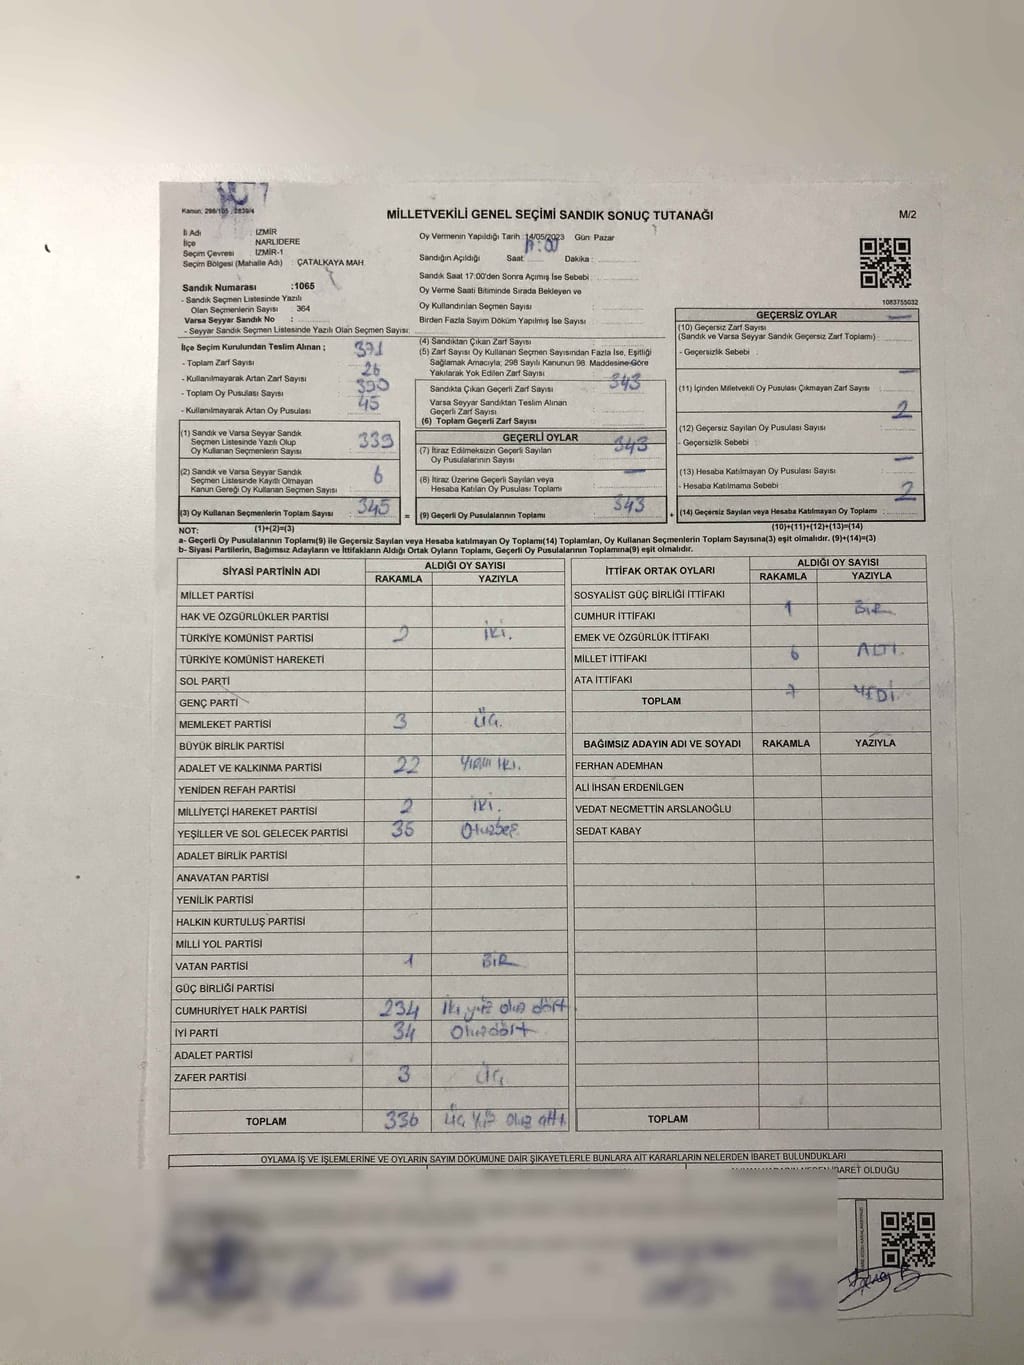 Kanun: 298/105, 2839/4
MİLLETVEKİLİ GENEL SEÇİMİ SANDIK SONUÇ TUTANAĞI
M/2
İl Adı : İZMİR
İlçe NARLIDERE
Seçim Çevresi : İZMİR-1
Seçim Bölgesi (Mahalle Adı) : ÇATALKAYA MAH.
Sandık Numarası :1065
- Sandık Seçmen Listesinde Yazılı
Olan Seçmenlerin Sayısı : 364
Varsa Seyyar Sandık No :
- Seyyar Sandık Seçmen Listesinde Yazılı Olan Seçmen Sayısı:
Oy Vermenin Yapıldığı Tarih : 14/05/2023 Gün: Pazar
17:00
Sandığın Açıldığı Saat: Dakika :
Sandık Saat 17:00'den Sonra Açılmış İse Sebebi :
Oy Verme Saati Bitiminde Sırada Bekleyen ve
Oy Kullandırılan Seçmen Sayısı :
Birden Fazla Sayım Döküm Yapılmış İse Sayısı :
1083755032
İlçe Seçim Kurulundan Teslim Alınan ;
- Toplam Zarf Sayısı : 371
- Kullanılmayarak Artan Zarf Sayısı : 26
- Toplam Oy Pusulası Sayısı : 390
- Kullanılmayarak Artan Oy Pusulası : 45
(1) Sandık ve Varsa Seyyar Sandık
Seçmen Listesinde Yazılı Olup
Oy Kullanan Seçmenlerin Sayısı : 339
(2) Sandık ve Varsa Seyyar Sandık
Seçmen Listesinde Kayıtlı Olmayan
Kanun Gereği Oy Kullanan Seçmen Sayısı : 6
(3) Oy Kullanan Seçmenlerin Toplam Sayısı : 345 =
(4) Sandıktan Çıkan Zarf Sayısı :
(5) Zarf Sayısı Oy Kullanan Seçmen Sayısından Fazla İse, Eşitliği
Sağlamak Amacıyla; 298 Sayılı Kanunun 98. Maddesine Göre
Yakılarak Yok Edilen Zarf Sayısı :
Sandıkta Çıkan Geçerli Zarf Sayısı : 343
Varsa Seyyar Sandıktan Teslim Alınan
Geçerli Zarf Sayısı :
(6) Toplam Geçerli Zarf Sayısı :
GEÇERLİ OYLAR
(7) İtiraz Edilmeksizin Geçerli Sayılan
Oy Pusulalarının Sayısı : 343
(8) İtiraz Üzerine Geçerli Sayılan veya
Hesaba Katılan Oy Pusulası Toplamı : —
(9) Geçerli Oy Pusulalarının Toplamı : 343 +
GEÇERSİZ OYLAR
(10) Geçersiz Zarf Sayısı
(Sandık ve Varsa Seyyar Sandık Geçersiz Zarf Toplamı) : —
- Geçersizlik Sebebi :
(11) İçinden Milletvekili Oy Pusulası Çıkmayan Zarf Sayısı : —
(12) Geçersiz Sayılan Oy Pusulası Sayısı : 2
- Geçersizlik Sebebi :
(13) Hesaba Katılmayan Oy Pusulası Sayısı : —
- Hesaba Katılmama Sebebi :
(14) Geçersiz Sayılan veya Hesaba Katılmayan Oy Toplamı : 2
NOT: (1)+(2)=(3)
(10)+(11)+(12)+(13)=(14)
a- Geçerli Oy Pusulasının Toplamı(9) ile Geçersiz Sayılan veya Hesaba katılmayan Oy Toplamı(14) Toplamları, Oy Kullanan Seçmenlerin Toplam Sayısına(3) eşit olmalıdır. (9)+(14)=(3)
b- Siyasi Partilerin, Bağımsız Adayların ve İttifakların Aldığı Ortak Oyların Toplamı, Geçerli Oy Pusulalarının Toplamına(9) eşit olmalıdır.
SİYASİ PARTİNİN ADI ALDIĞI OY SAYISI
RAKAMLA YAZIYLA
MİLLET PARTİSİ
HAK VE ÖZGÜRLÜKLER PARTİSİ
TÜRKİYE KOMÜNİST PARTİSİ 2 İKİ.
TÜRKİYE KOMÜNİST HAREKETİ
SOL PARTİ
GENÇ PARTİ
MEMLEKET PARTİSİ 3 ÜÇ.
BÜYÜK BİRLİK PARTİSİ
ADALET VE KALKINMA PARTİSİ 22 Yirmi iki.
YENİDEN REFAH PARTİSİ
MİLLİYETÇİ HAREKET PARTİSİ 2 İKİ.
YEŞİLLER VE SOL GELECEK PARTİSİ 35 Otuzbeş
ADALET BİRLİK PARTİSİ
ANAVATAN PARTİSİ
YENİLİK PARTİSİ
HALKIN KURTULUŞ PARTİSİ
MİLLİ YOL PARTİSİ
VATAN PARTİSİ 1 BİR
GÜÇ BİRLİĞİ PARTİSİ
CUMHURİYET HALK PARTİSİ 234 İki yüz otuz dört
İYİ PARTİ 34 Otuzdört
ADALET PARTİSİ
ZAFER PARTİSİ 3 Üç
TOPLAM 336 Üç yüz otuz altı
İTTİFAK ORTAK OYLARI ALDIĞI OY SAYISI
RAKAMLA YAZIYLA
SOSYALİST GÜÇ BİRLİĞİ İTTİFAKI
CUMHUR İTTİFAKI 1 BİR
EMEK VE ÖZGÜRLÜK İTTİFAKI
MİLLET İTTİFAKI 6 ALTI.
ATA İTTİFAKI
TOPLAM 7 YEDİ
BAĞIMSIZ ADAYIN ADI VE SOYADI RAKAMLA YAZIYLA
FERHAN ADEMHAN
ALİ İHSAN ERDENİLGEN
VEDAT NECMETTİN ARSLANOĞLU
SEDAT KABAY
TOPLAM
OYLAMA İŞ VE İŞLEMLERİNE VE OYLARIN SAYIM DÖKÜMÜNE DAİR ŞİKAYETLERLE BUNLARA AİT KARARLARIN NELERDEN İBARET BULUNDUKLARI
İBARET OLDUĞU